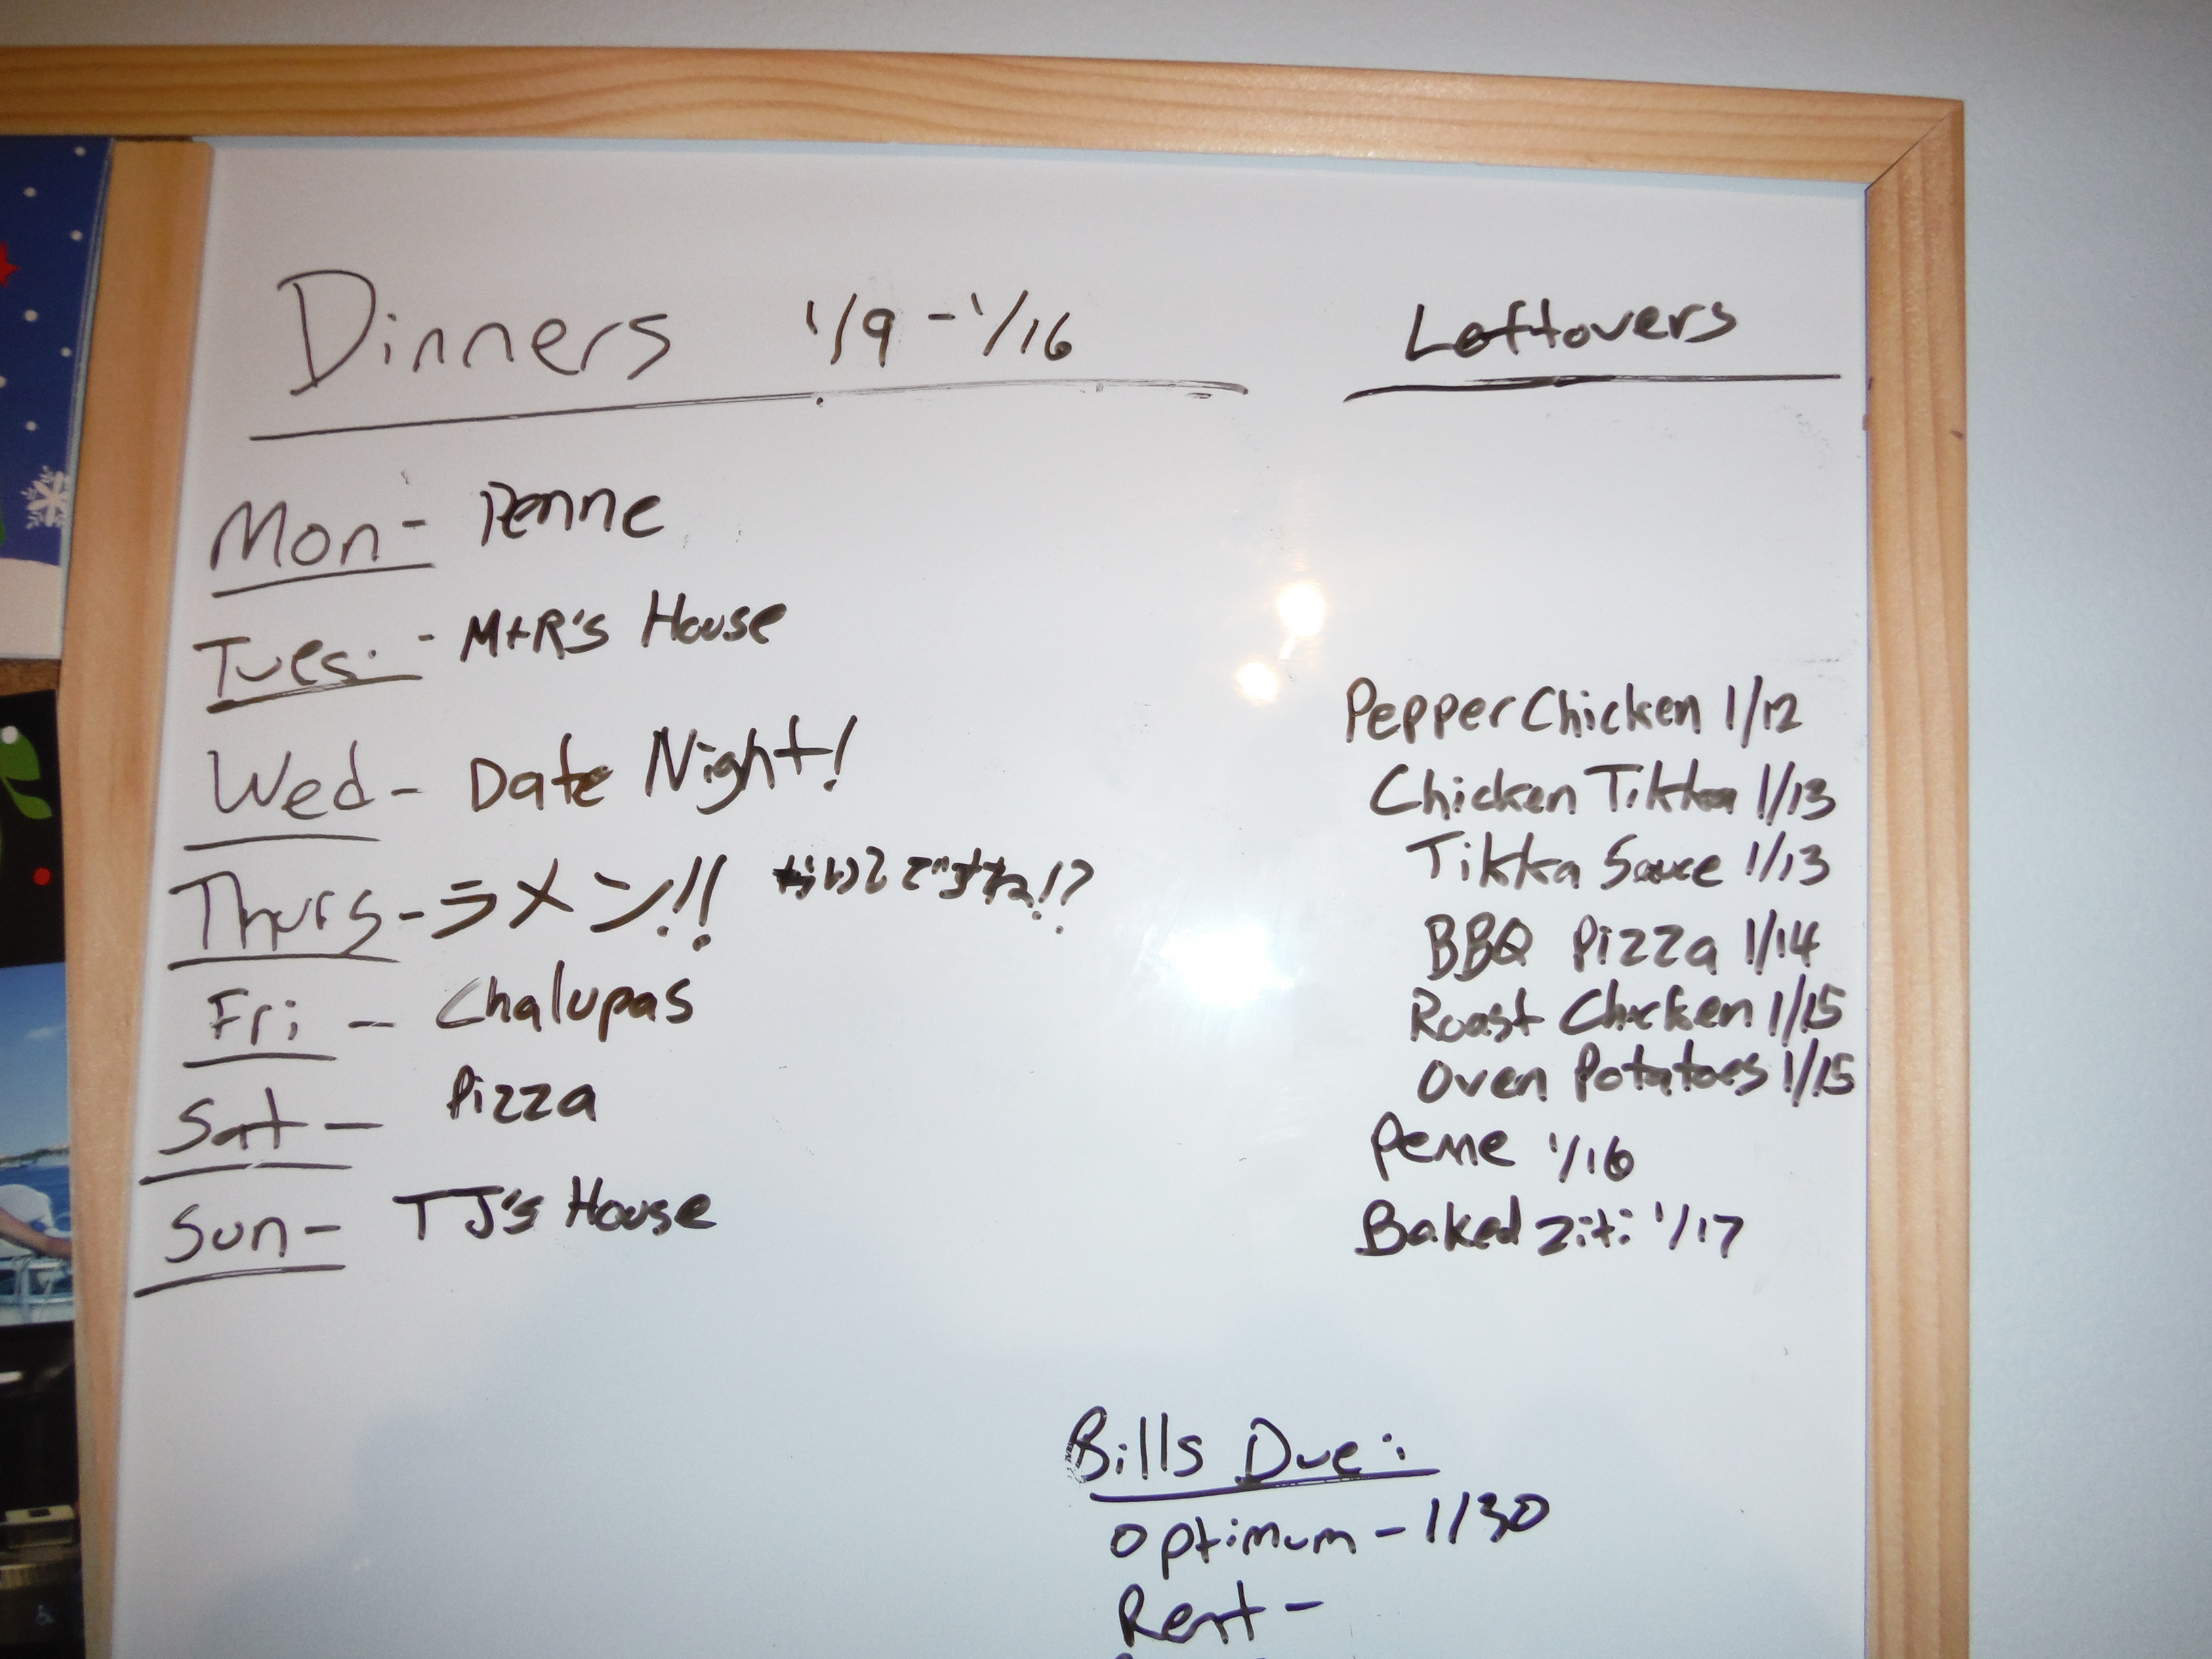 Dinners 1/9 - 1/16
Mon - Penne
Tues. - M+R's House
Wed - Date Night!
Thurs - ラメン!! ですね!?
Fri - Chalupas
Sat - Pizza
Sun - TJ's House
Leftovers
Pepper Chicken 1/12
Chicken Tikka 1/13
Tikka Sauce 1/13
BBQ Pizza 1/14
Roast Chicken 1/15
Oven Potatoes 1/15
Penne 1/16
Baked Ziti 1/17
Bills Due:
Optimum - 1/30
Rent -